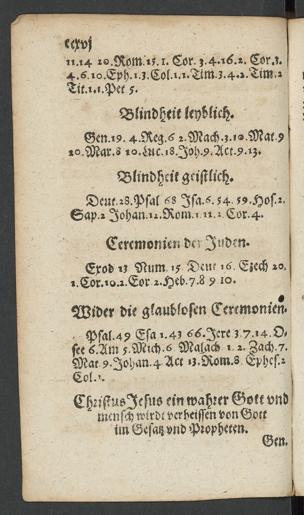 ccxvj
11.14 20.Rom.15.1. Cor. 3.4.16.2. Cor.3.
4.6.10.Eph.1.3.Col.1.1.Tim.3.4.2.Tim.2
Tit.1.1.Pet 5.
Blindheit leyblich.
Gen.19. 4.Reg.6 2.Mach.3.10.Mat.9
20.Mar.8 10.Luc.18.Joh.9.Act.9.13.
Blindheit geistlich.
Deut.28.Psal 68 Isa.6.54.59.Hos.2.
Sap.2 Johan.12.Rom.1 11.2 Cor.4.
Ceremonien der Juden.
Exod 13 Num. 15. Deut 16. Ezech 20.
1.Cor.10.2.Cor 2.Heb.7.8 9 10.
Wider die glaublosen Ceremonien.
Psal.49 Esa 1.43 66.Jere 3.7.14.O-
see 6.Am 5.Mich.6 Malach 1.2.Zach.7.
Mat.9.Johan.4 Act 13.Rom.8.Ephes.2
Col.2.
Christus Jesus ein wahrer Gott vnd
mensch wirdt verheissen von Gott
im Gesatz vnd Propheten.
Gen.